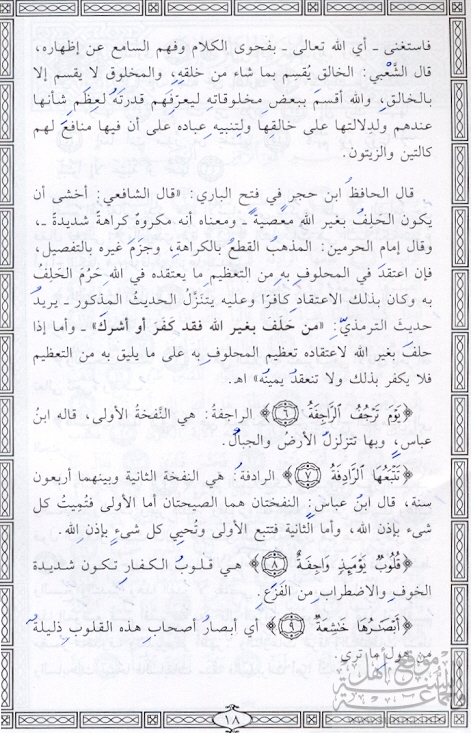 فاستغنى ـ أي الله تعالى ـ بفحوى الكلام وفهم السامع عن إظهاره،
قال الشَّعْبي: الخالق يُقسِم بما شاء من خلقِهِ، والمخلوق لا يقسم إلا
بالخالق، والله أقسمَ ببعض مخلوقاتهِ ليعرّفَهم قدرتَهُ لعِظَم شأنها
عندهم ولدِلالتها على خالقِها ولتنبيهِ عباده على أن فيها منافعَ لهم
كالتين والزيتون.
قال الحافظُ ابن حجر في فتح الباري: «قال الشافعي: أخشى أن
يكون الحَلِفُ بغير اللهِ معصيةً ـ ومعناه أنه مكروهٌ كراهةً شديدةً ـ،
وقال إمام الحرمين: المذهبُ القطعُ بالكراهةِ، وجزَمَ غيره بالتفصيل،
فإن اعتقدَ في المحلوفِ بهِ من التعظيم ما يعتقده في اللهِ حَرُمَ الحَلِفُ
به وكان بذلك الاعتقادِ كافرًا وعليه يتنَزَّلُ الحديثُ المذكور ـ يريدُ
حديثَ الترمذيّ: «من حَلَفَ بغير الله فقد كَفَرَ أو أشرك» ـ وأما إذا
حلفَ بغير اللهِ لاعتقاده تعظيم المحلوفِ به على ما يليق به من التعظيم
فلا يكفر بذلك ولا تنعقدُ يمينُه» اهـ.
﴿يَوْمَ تَرْجُفُ الرَّاجِفَةُ ﴿٦﴾﴾ الراجفةُ: هي النَّفخةُ الأولى، قاله ابنُ
عباسٍ، وبها تتزلزلُ الأرضُ والجبالُ.
﴿تَتْبَعُهَا الرَّادِفَةُ ﴿٧﴾﴾ الرادفةُ: هي النفخةُ الثانية وبينهما أربعون
سنة، قال ابنُ عباسٍ: النفختان هما الصيحتان أما الأولى فتُمِيتُ كل
شىء بإذن الله، وأما الثانية فتتبع الأولى وتُحيِي كلَّ شىءٍ بإذن اللهِ.
﴿قُلُوبٌ يَوْمَئِذٍ وَاجِفَةٌ ﴿٨﴾﴾ هي قلوبُ الكفارِ تكون شديدةَ
الخوفِ والاضطرابِ من الفَزَعِ.
﴿أَبْصَارُهَا خَاشِعَةٌ ﴿٩﴾﴾ أي أبصارُ أصحابِ هذه القلوبِ ذليلةٌ
من هول ما ترى.
١٨